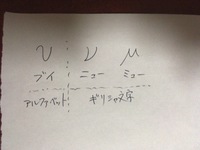 υ ν μ
ブイ ニュー ミュー
アルファベット ギリシャ文字